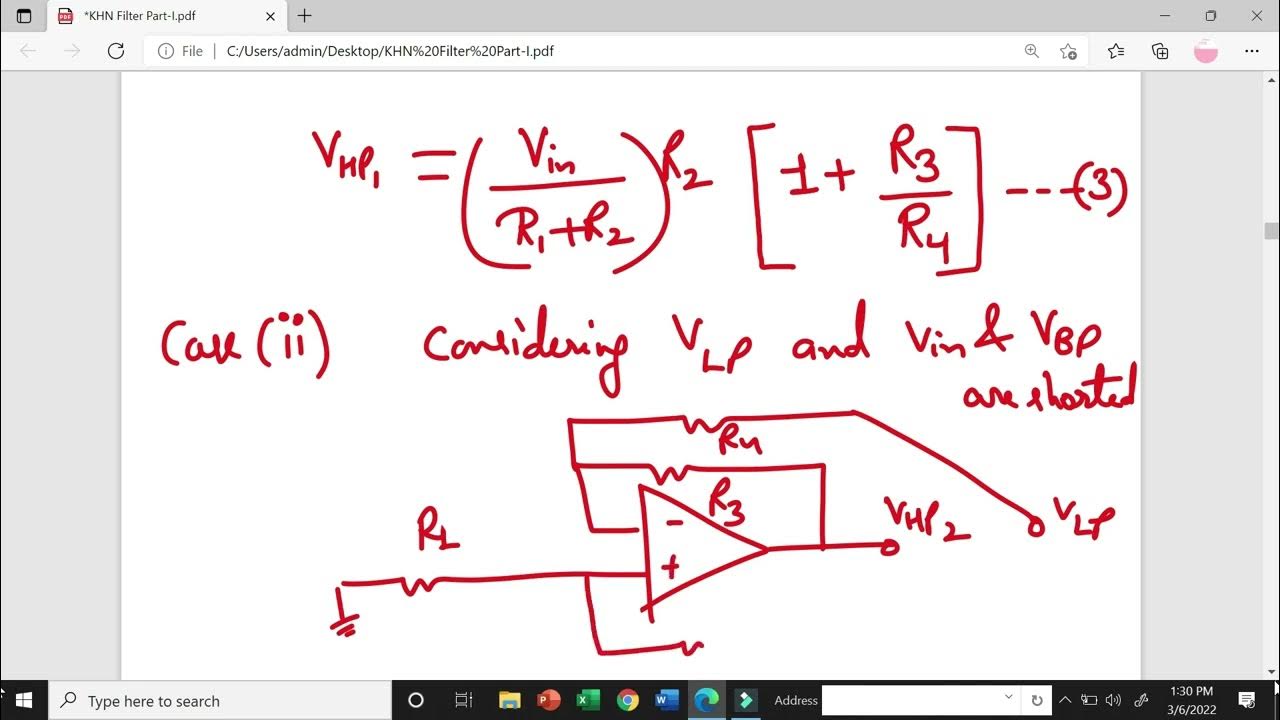 *KHN Filter Part-I.pdf
File | C:/Users/admin/Desktop/KHN%20Filter%20Part-I.pdf
V_HP1 = (Vin / (R1+R2)) R2 [1 + R3/R4] ---(3)
Case (ii) Considering V_LP and Vin & V_BP
are shorted
R4
R3
R1
-
+
V_HP2
V_LP
Type here to search
Address
1:30 PM
3/6/2022